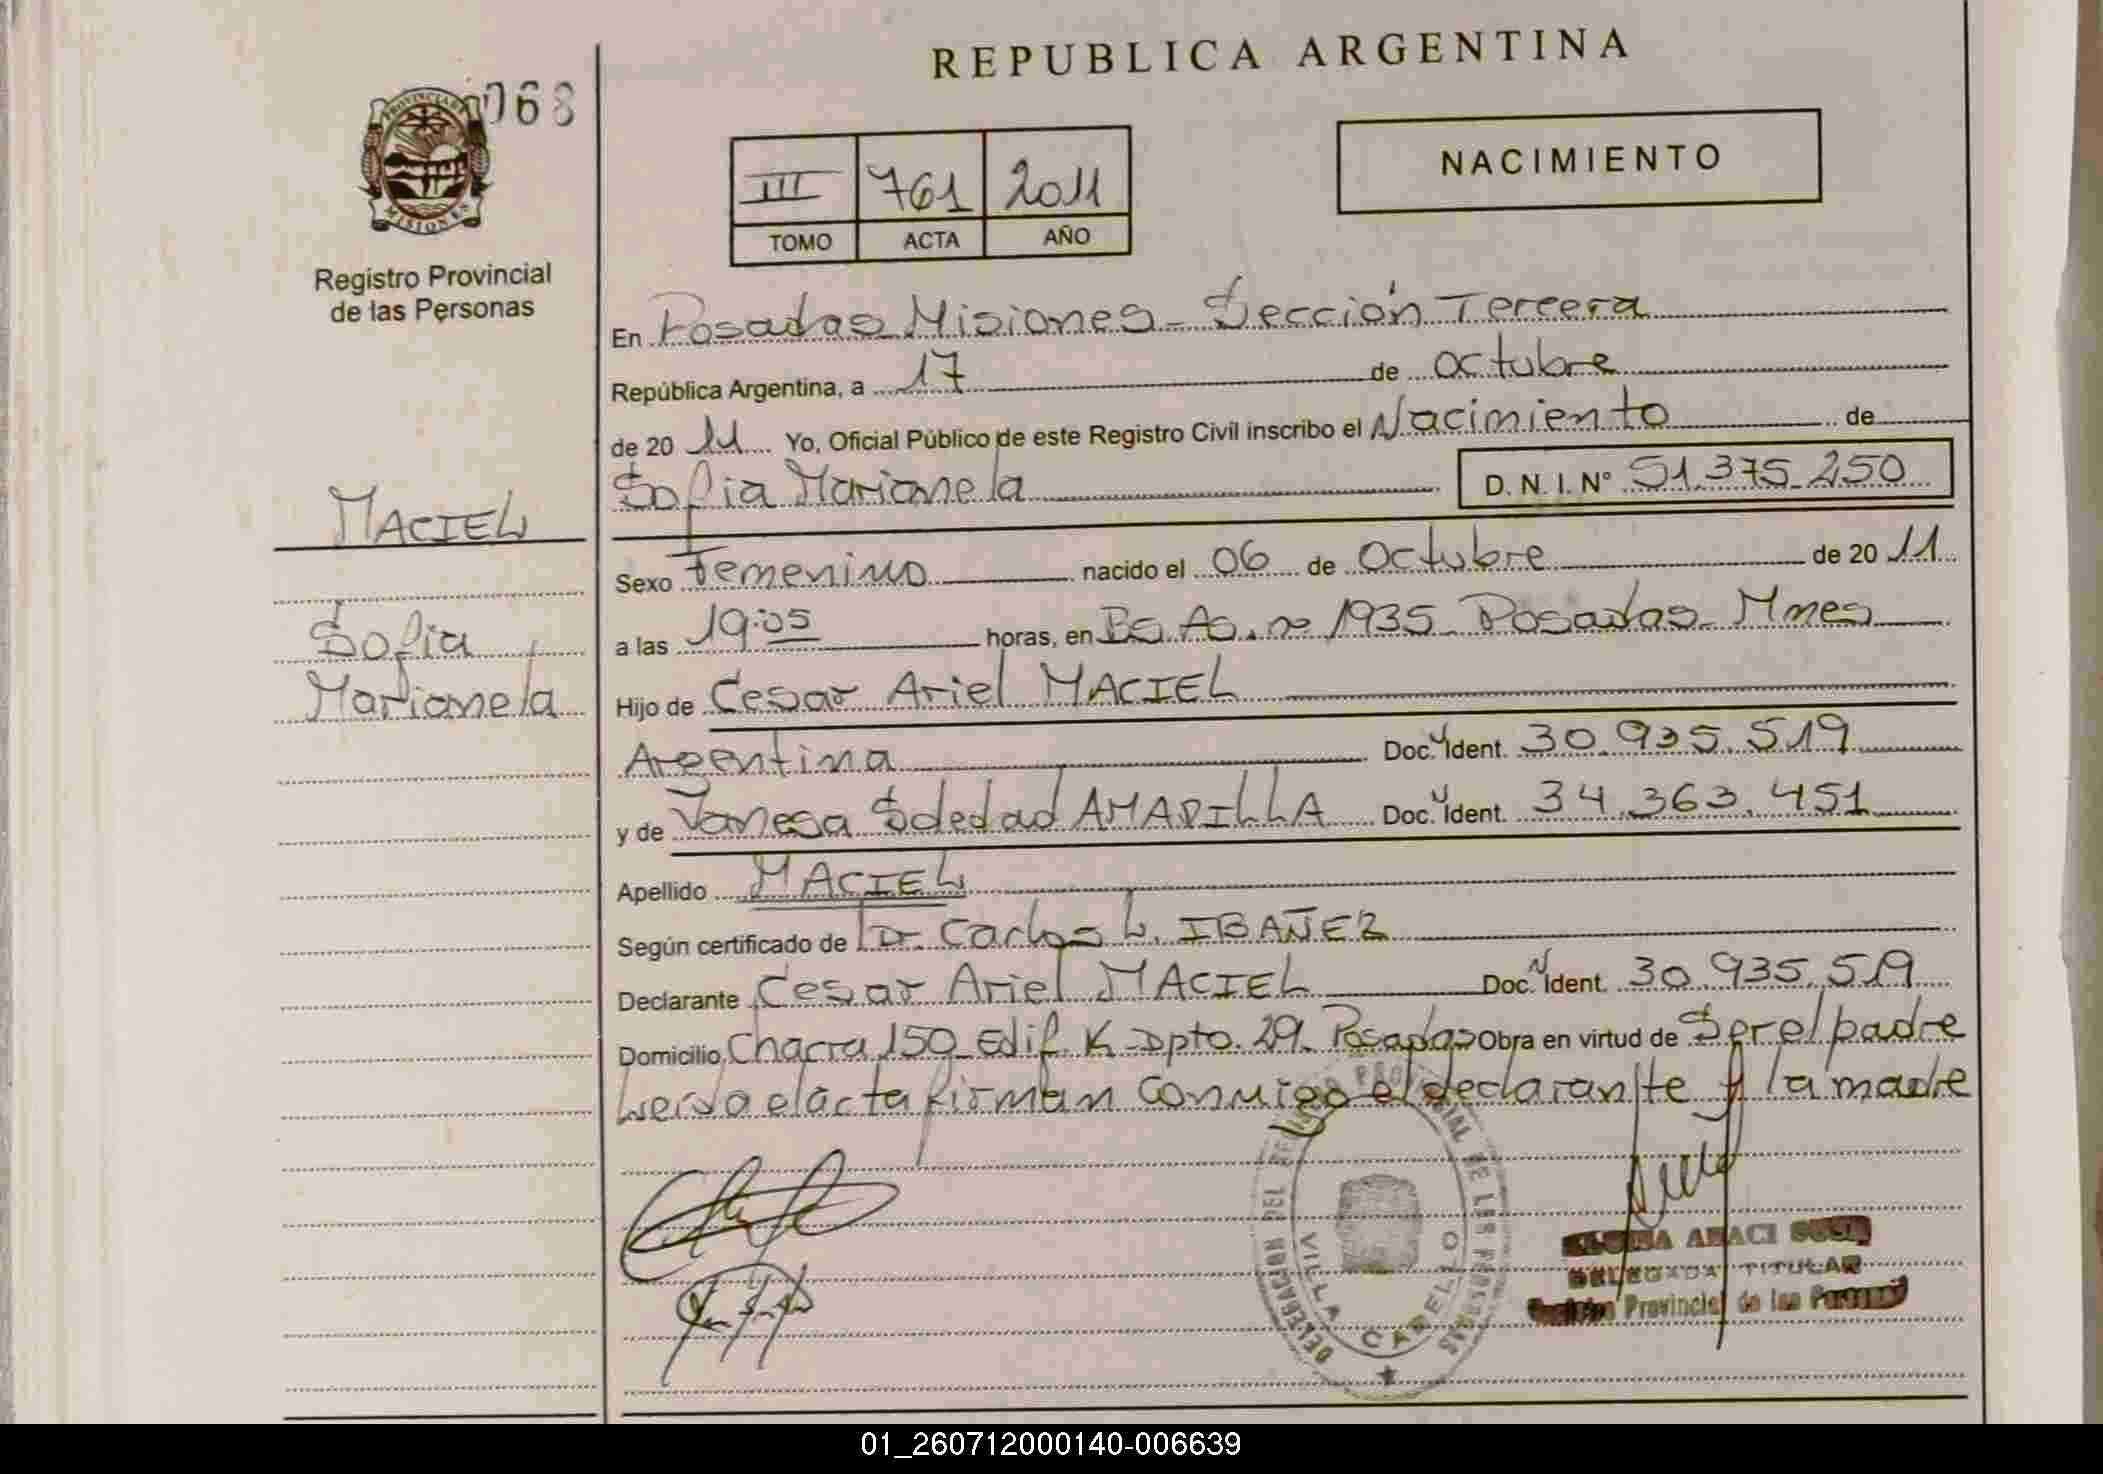 REPUBLICA ARGENTINA
068
PROVINCIA DE MISIONES
Registro Provincial
de las Personas
III 761 2011
TOMO ACTA AÑO
NACIMIENTO
En Posadas Misiones - Sección Tercera
República Argentina, a 17 de octubre
de 20 11 Yo, Oficial Público de este Registro Civil inscribo el Nacimiento de
Sofia Marianela D. N. I. N° 51.375.250
MACIEL
Sofia
Marianela
Sexo Femenino nacido el 06 de Octubre de 20 11
a las 19:05 horas, en Bs. As. nº 1935 Posadas - Mnes
Hijo de Cesar Ariel MACIEL
Argentina Doc. Ident. 30.935.519
y de Vanesa Soledad AMARILLA Doc. Ident. 34.363.451
Apellido MACIEL
Según certificado de Dr. Carlos L. IBAÑEZ
Declarante Cesar Ariel MACIEL Doc. Ident. 30.935.519
Domicilio Chacra 150 Edif. K - Dpto. 29. Posadas Obra en virtud de Ser el padre
Leida el acta firman conmigo el declarante y la madre
DELEGACION DEL REGISTRO PROVINCIAL DE LAS PERSONAS
VILLA CABELLO
ARACI
DELEGADA TITULAR
Registro Provincial de las Personas
01_260712000140-006639